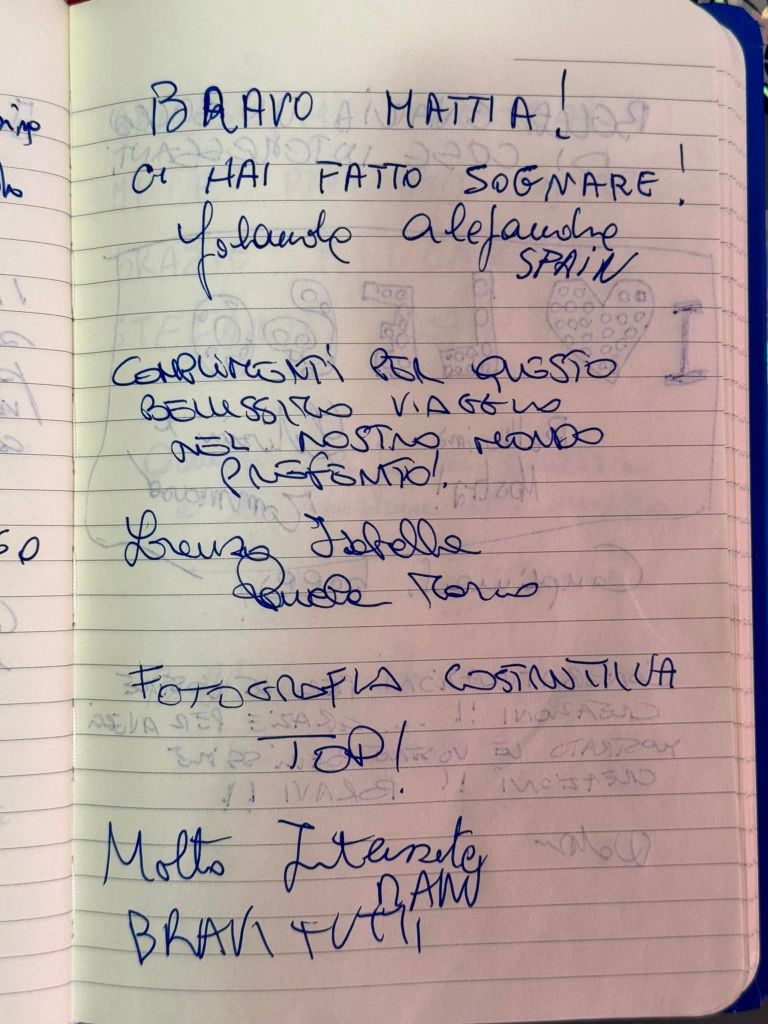 BRAVO MATTIA!
CI HAI FATTO SOGNARE!
Yolanda Alejandre
SPAIN
COMPLIMENTI PER QUESTO
BELLISSIMO VIAGGIO
NEL NOSTRO MONDO
PREFERITO!
Lorenzo Isabella
Marco
FOTOGRAFIA COSTRUTTIVA
TOP!
Molto
DANI
BRAVI TUTTI